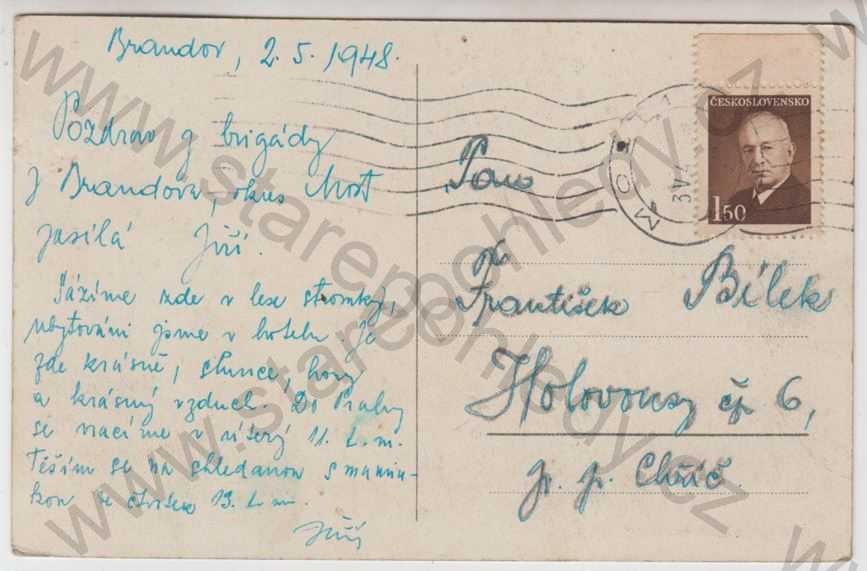 Brandov, 2.5.1948.
Pozdrav z brigády
z Brandova, okres Most
zasílá Jiří.
Sázíme zde v lese stromky,
ubytováni jsme v hotelu. Je
zde krásně, slunce, hory
a krásný vzduch. Do Prahy
se vracíme v úterý 11. t. m.
Těším se na shledanou s mamin-
kou ve čtvrtek 13. t. m.
Jiří
ČESKOSLOVENSKO
1.50
MO
Pan
František Bílek
Holovousy čp 6,
p. p. Chříč.
www.starepohledy.cz
www.starepohledy.cz